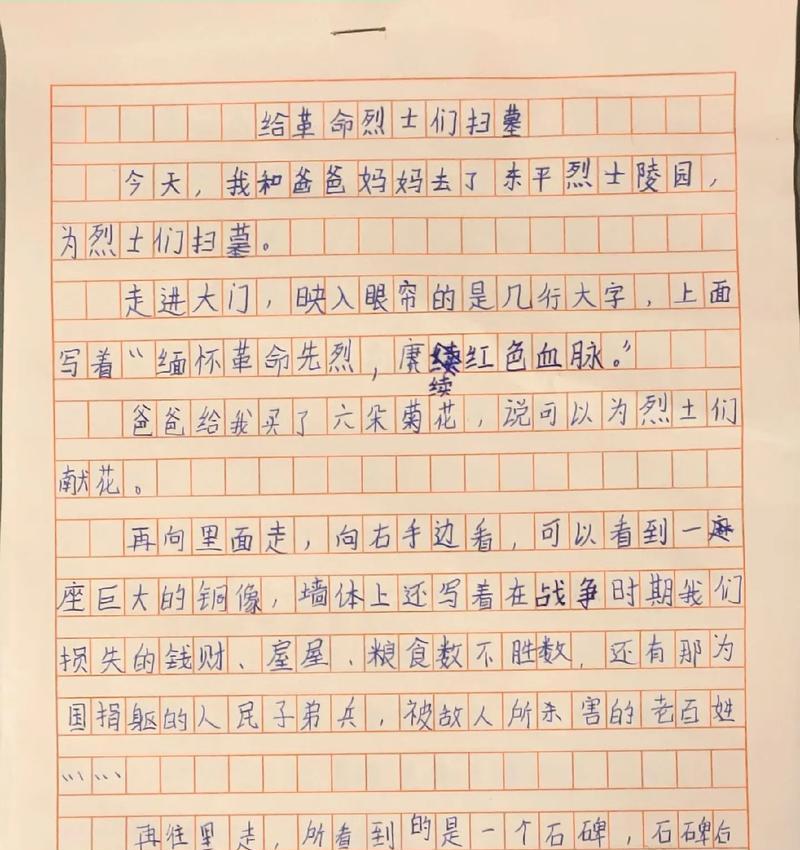 给革命烈士们扫墓
今天，我和爸爸妈妈去了东平烈士陵园，
为烈士们扫墓。
走进大门，映入眼帘的是几行大字，上面
写着“缅怀革命先烈，赓续红色血脉。”
爸爸给我买了六朵菊花，说可以为烈士们
献花。
再向里面走，向右手边看，可以看到一
座巨大的铜像，墙体上还写着在战争时期我们
损失的钱财、屋、粮食数不胜数，还有那为
国捐躯的人民子弟兵，被敌人所杀害的老百姓
……
再往里走，所看到的是一个石碑，石碑后